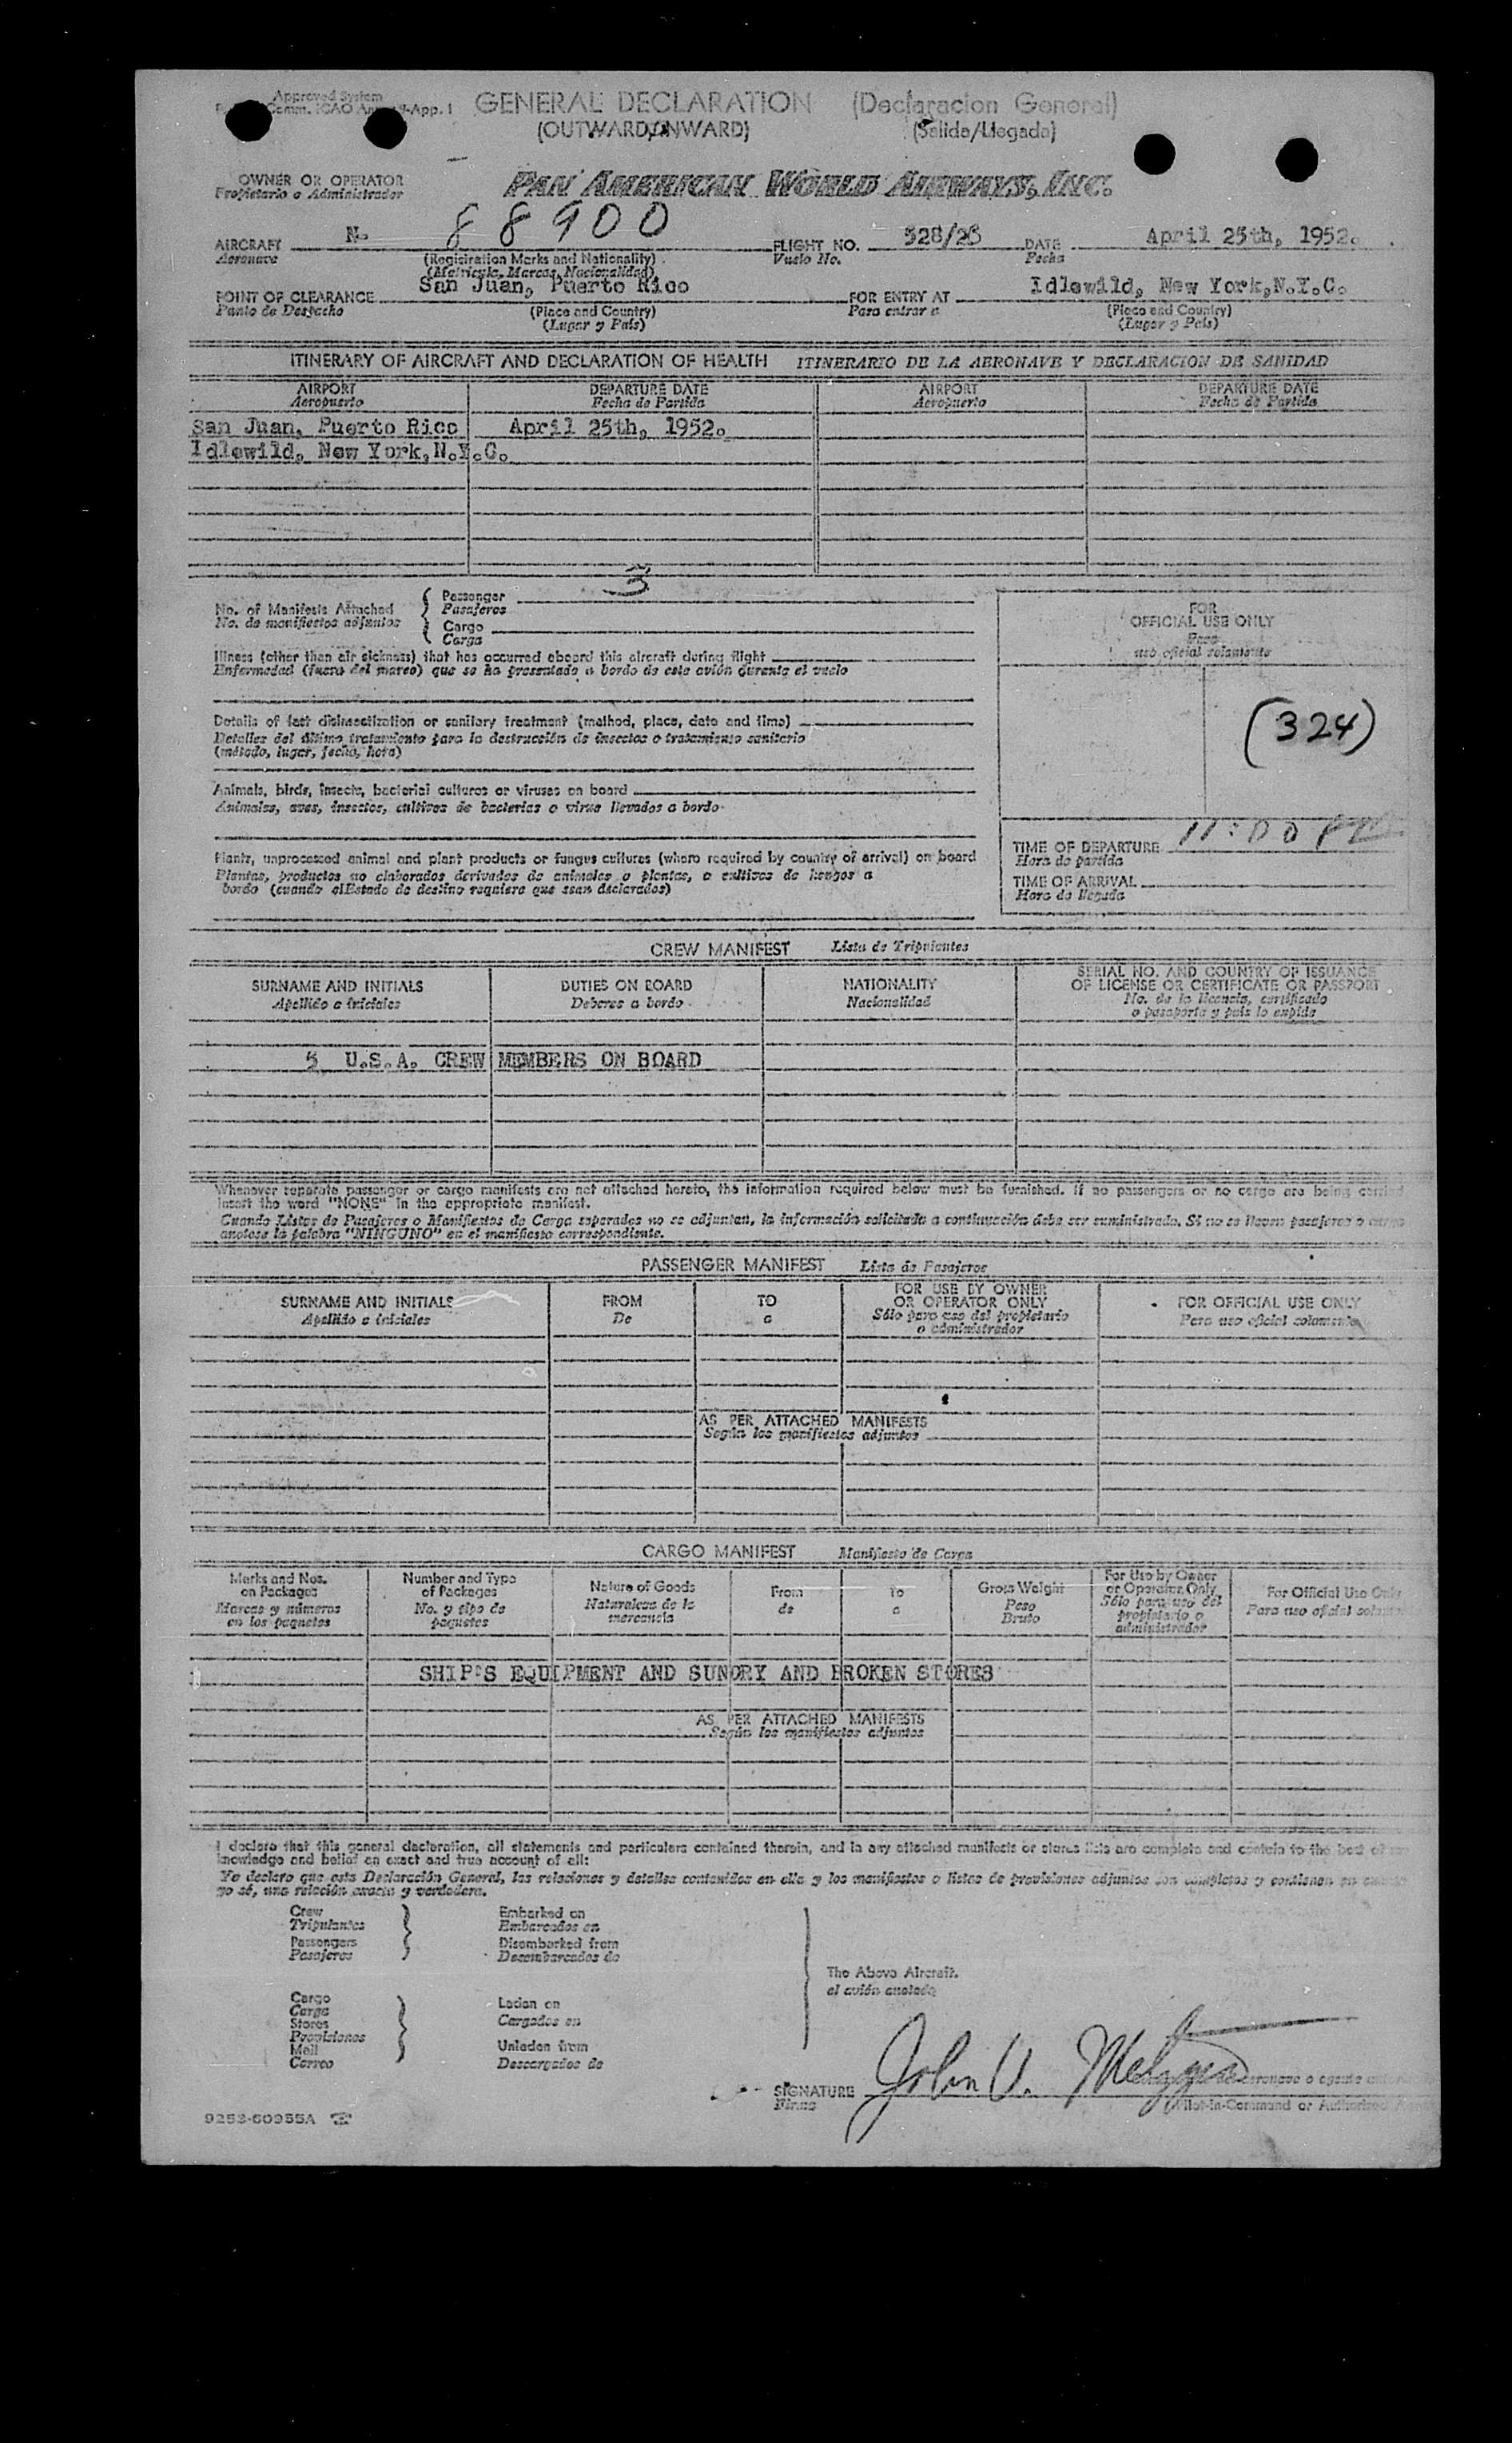 Approved System
Comm. ICAO App. 1
GENERAL DECLARATION (Declaracion General)
(OUTWARD/INWARD) (Salida/Llegada)
OWNER OR OPERATOR
Propietario o Administrador
PAN AMERICAN WORLD AIRWAYS, INC.
AIRCRAFT N- 88900 FLIGHT NO. 528/25 DATE April 25th, 1952.
Aeronave (Registration Marks and Nationality) Vuelo No. Fecha
(Matricula, Marcas, Nacionalidad)
POINT OF CLEARANCE San Juan, Puerto Rico FOR ENTRY AT Idlewild, New York,N.Y.C.
Punto de Despacho (Place and Country) Para entrar a (Place and Country)
(Lugar y País) (Lugar y País)
ITINERARY OF AIRCRAFT AND DECLARATION OF HEALTH ITINERARIO DE LA AERONAVE Y DECLARACION DE SANIDAD
AIRPORT DEPARTURE DATE AIRPORT DEPARTURE DATE
Aeropuerto Fecha de Partida Aeropuerto Fecha de Partida
San Juan, Puerto Rico April 25th, 1952.
Idlewild, New York,N.Y.C.
No. of Manifests Attached
No. de manifiestos adjuntos
Passenger 3
Pasajeros
Cargo
Carga
FOR
OFFICIAL USE ONLY
Para
uso oficial solamente
Illness (other than air sickness) that has occurred aboard this aircraft during flight
Enfermedad (fuera del mareo) que se ha presentado a bordo de este avión durante el vuelo
Details of last disinsectization or sanitary treatment (method, place, date and time)
Detalles del último tratamiento para la destrucción de insectos o tratamiento sanitario
(método, lugar, fecha, hora)
(324)
Animals, birds, insects, bacterial cultures or viruses on board
Animales, aves, insectos, cultivos de bacterias o virus llevados a bordo
Plants, unprocessed animal and plant products or fungus cultures (where required by country of arrival) on board
Plantas, productos no elaborados derivados de animales o plantas, o cultivos de hongos a
bordo (cuando elEstado de destino requiera que sean declarados)
TIME OF DEPARTURE 11:00 PM
Hora de partida
TIME OF ARRIVAL
Hora de llegada
CREW MANIFEST Lista de Tripulantes
SURNAME AND INITIALS DUTIES ON BOARD NATIONALITY SERIAL NO. AND COUNTRY OF ISSUANCE
OF LICENSE OR CERTIFICATE OR PASSPORT
Apellido e iniciales Deberes a bordo Nacionalidad No. de la licencia, certificado
o pasaporte y país lo expide
5 U.S.A. CREW MEMBERS ON BOARD
Whenever separate passenger or cargo manifests are not attached hereto, the information required below must be furnished. If no passengers or no cargo are being carried
insert the word "NONE" in the appropriate manifest.
Cuando Listas de Pasajeros o Manifiestos de Carga separados no se adjuntan, la información solicitada a continuación debe ser suministrada. Si no se llevan pasajeros o carga
anotese la palabra "NINGUNO" en el manifiesto correspondiente.
PASSENGER MANIFEST Lista de Pasajeros
SURNAME AND INITIALS FROM TO FOR USE BY OWNER
OR OPERATOR ONLY FOR OFFICIAL USE ONLY
Apellido e iniciales De a Sólo para uso del propietario
o administrador Para uso oficial solamente
AS PER ATTACHED MANIFESTS
Según los manifiestos adjuntos
CARGO MANIFEST Manifiesto de Carga
Marks and Nos.
on Packages
Marcas y números
en los paquetes
Number and Type
of Packages
No. y tipo de
paquetes
Nature of Goods
Naturaleza de la
mercancia
From
de
To
a
Gross Weight
Peso
Bruto
For Use by Owner
or Operator Only
Sólo para uso del
propietario o
administrador
For Official Use Only
Para uso oficial
SHIP'S EQUIPMENT AND SUNDRY AND BROKEN STORES
AS PER ATTACHED MANIFESTS
Según los manifiestos adjuntos
I declare that this general declaration, all statements and particulars contained therein, and in any attached manifests or stores lists are complete and contain to the best of
knowledge and belief an exact and true account of all:
Yo declaro que esta Declaración General, las relaciones y detalles contenidos en ella y los manifiestos o listas de provisiones adjuntos son completos y contienen en cuanto
yo sé, una relación exacta y verdadera.
Crew Embarked on
Tripulantes Embarcados en
Passengers Disembarked from
Pasajeros Desembarcados de
The Above Aircraft.
el avión anotado
Cargo Laden on
Carga Cargados en
Stores
Provisiones
Mail Unladen from
Correo Descargados de
SIGNATURE John V. Metzger
Firma
aeronave o agente
Pilot-in-Command or Authorized
9253-60955A